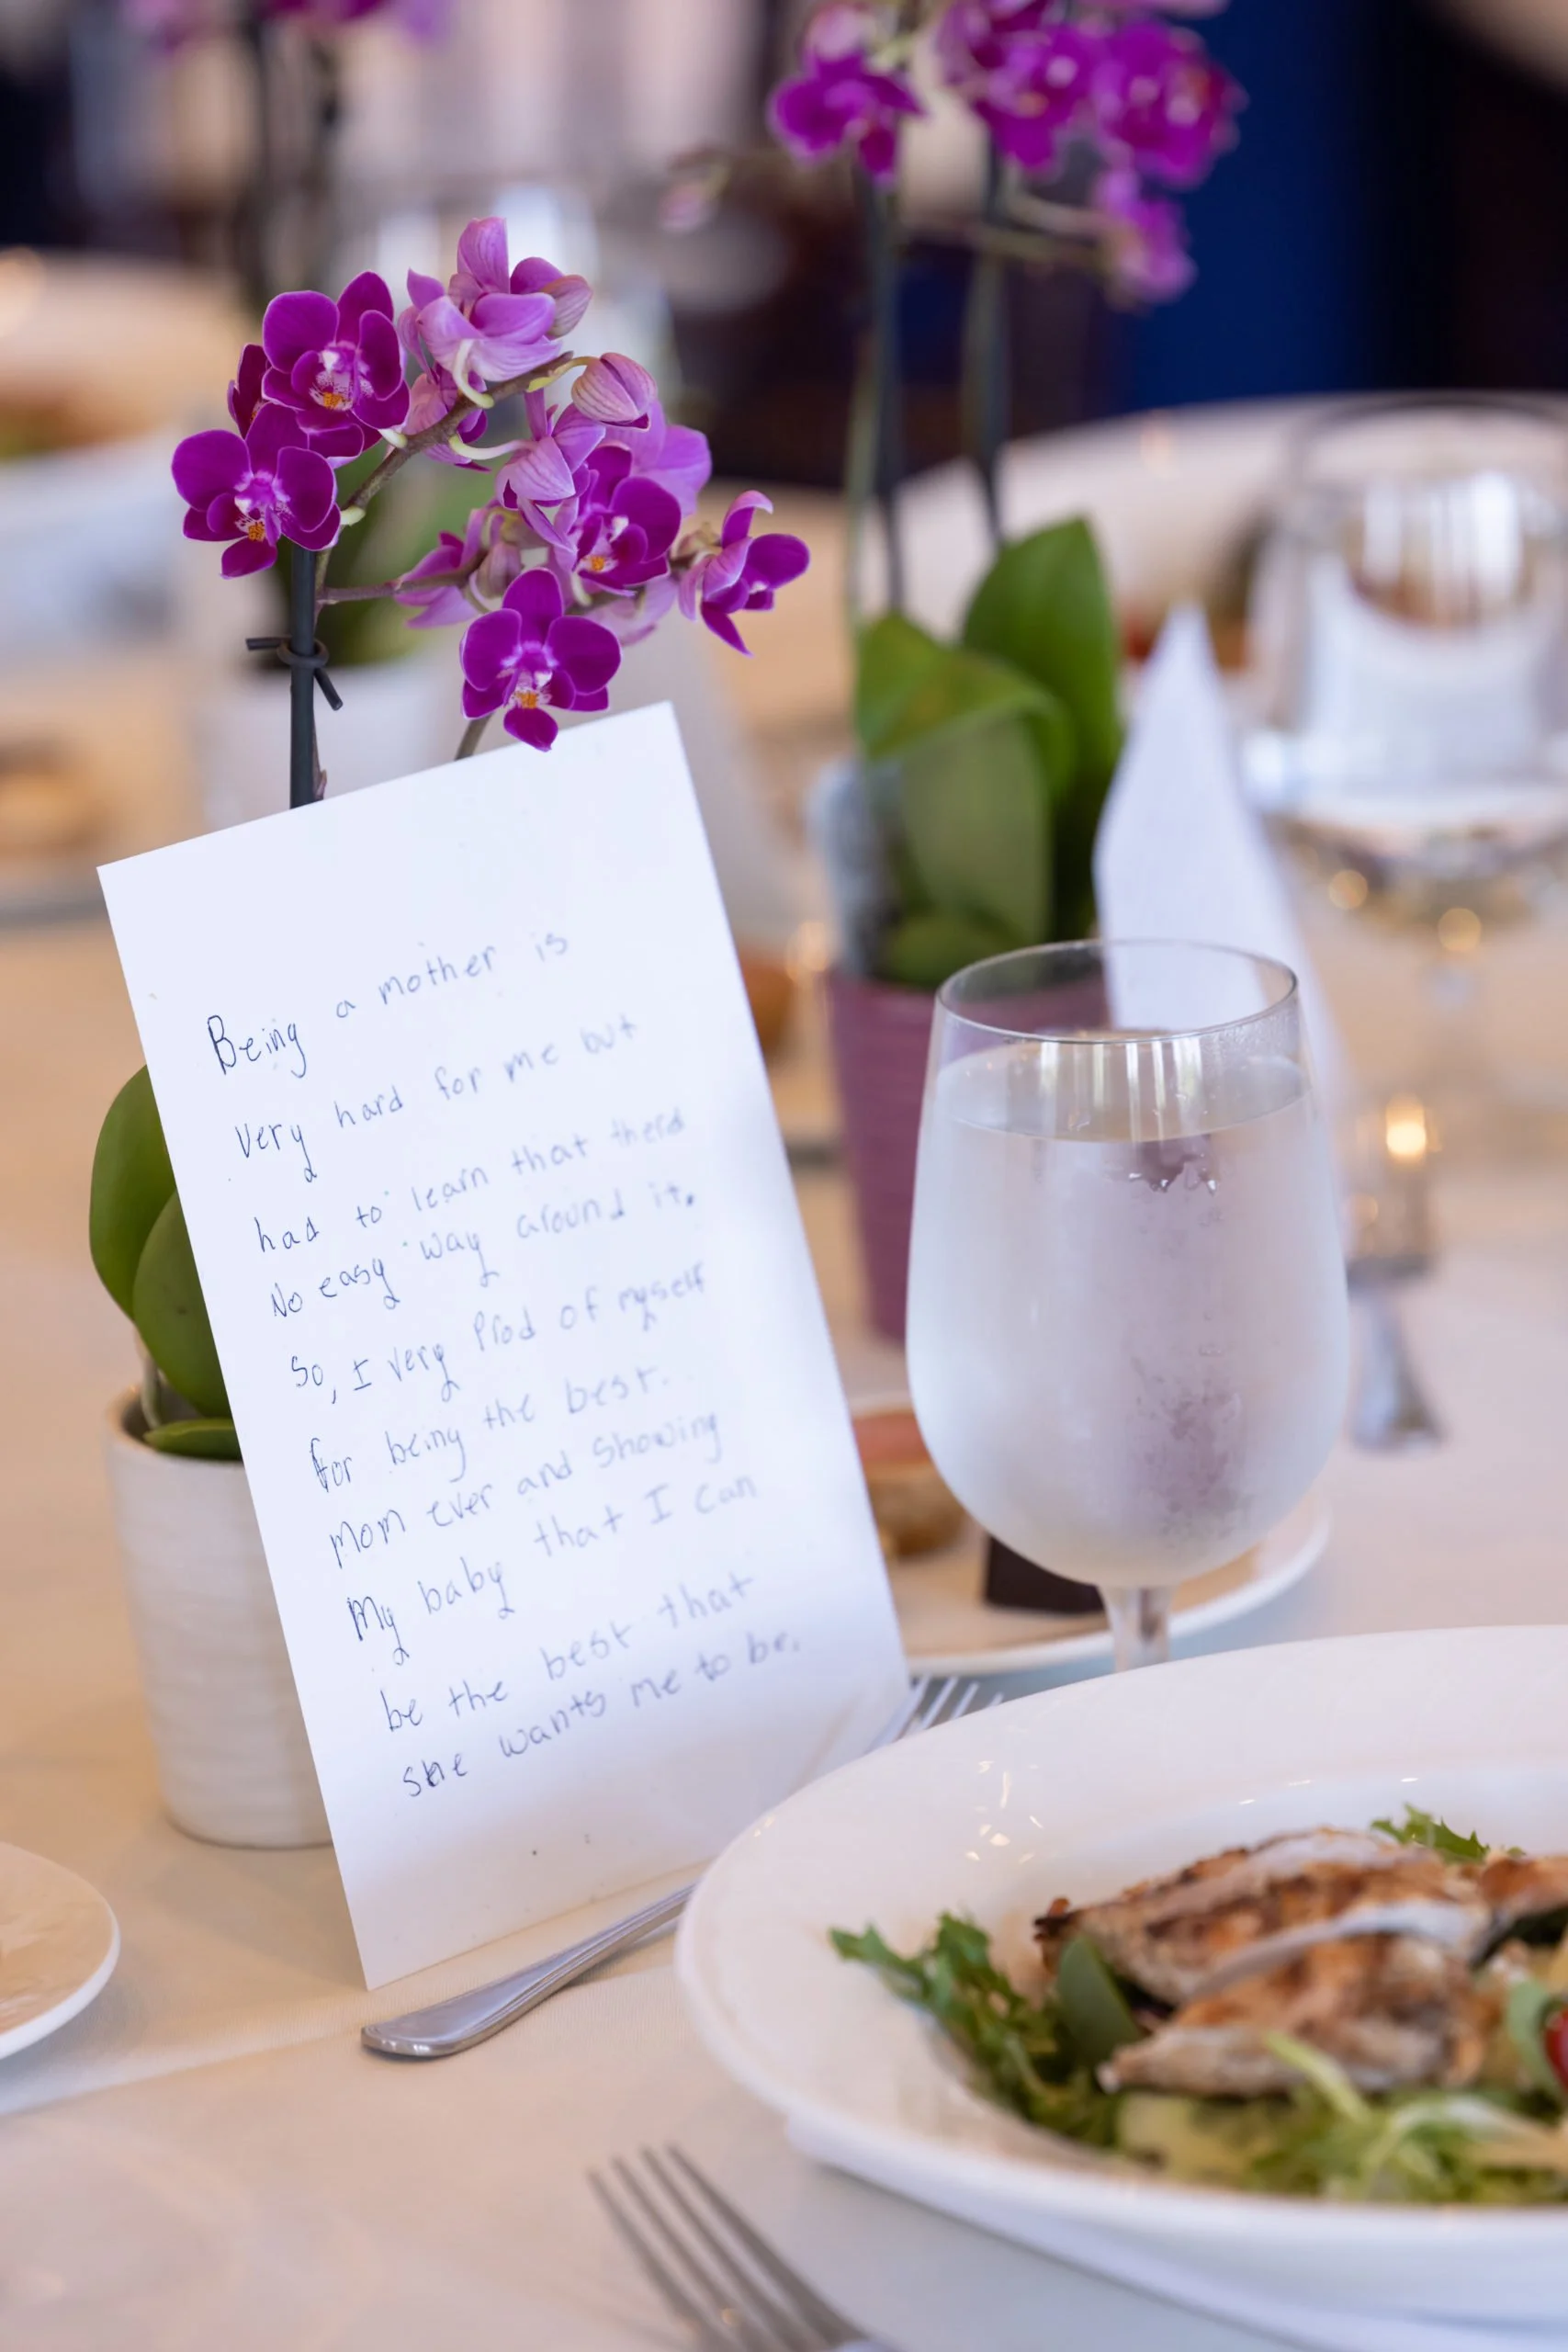 Being a mother is
very hard for me but
had to learn that theres
No easy way around it.
So, I very Prod of myself
for being the best.
mom ever and showing
My baby that I can
be the best that
she wants me to be.